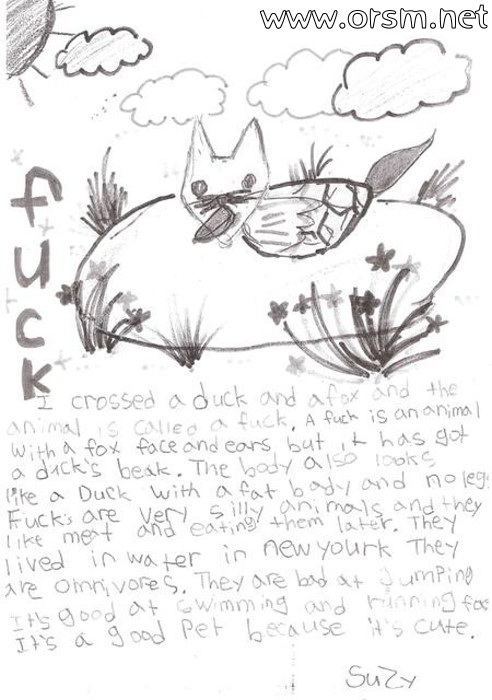 www.orsm.net
fuck
I crossed a duck and a fox and the
animal is called a fuck. A fuck is an animal
with a fox face and ears but it has got
a duck's beak. The body also looks
like a Duck with a fat body and no legs
Fuck's are very silly animals and they
like meat and eating them later. They
lived in water in new yourk They
are omnivores. They are bad at Jumping
It's good at swimming and running for
It's a good pet because it's cute.
Suzy